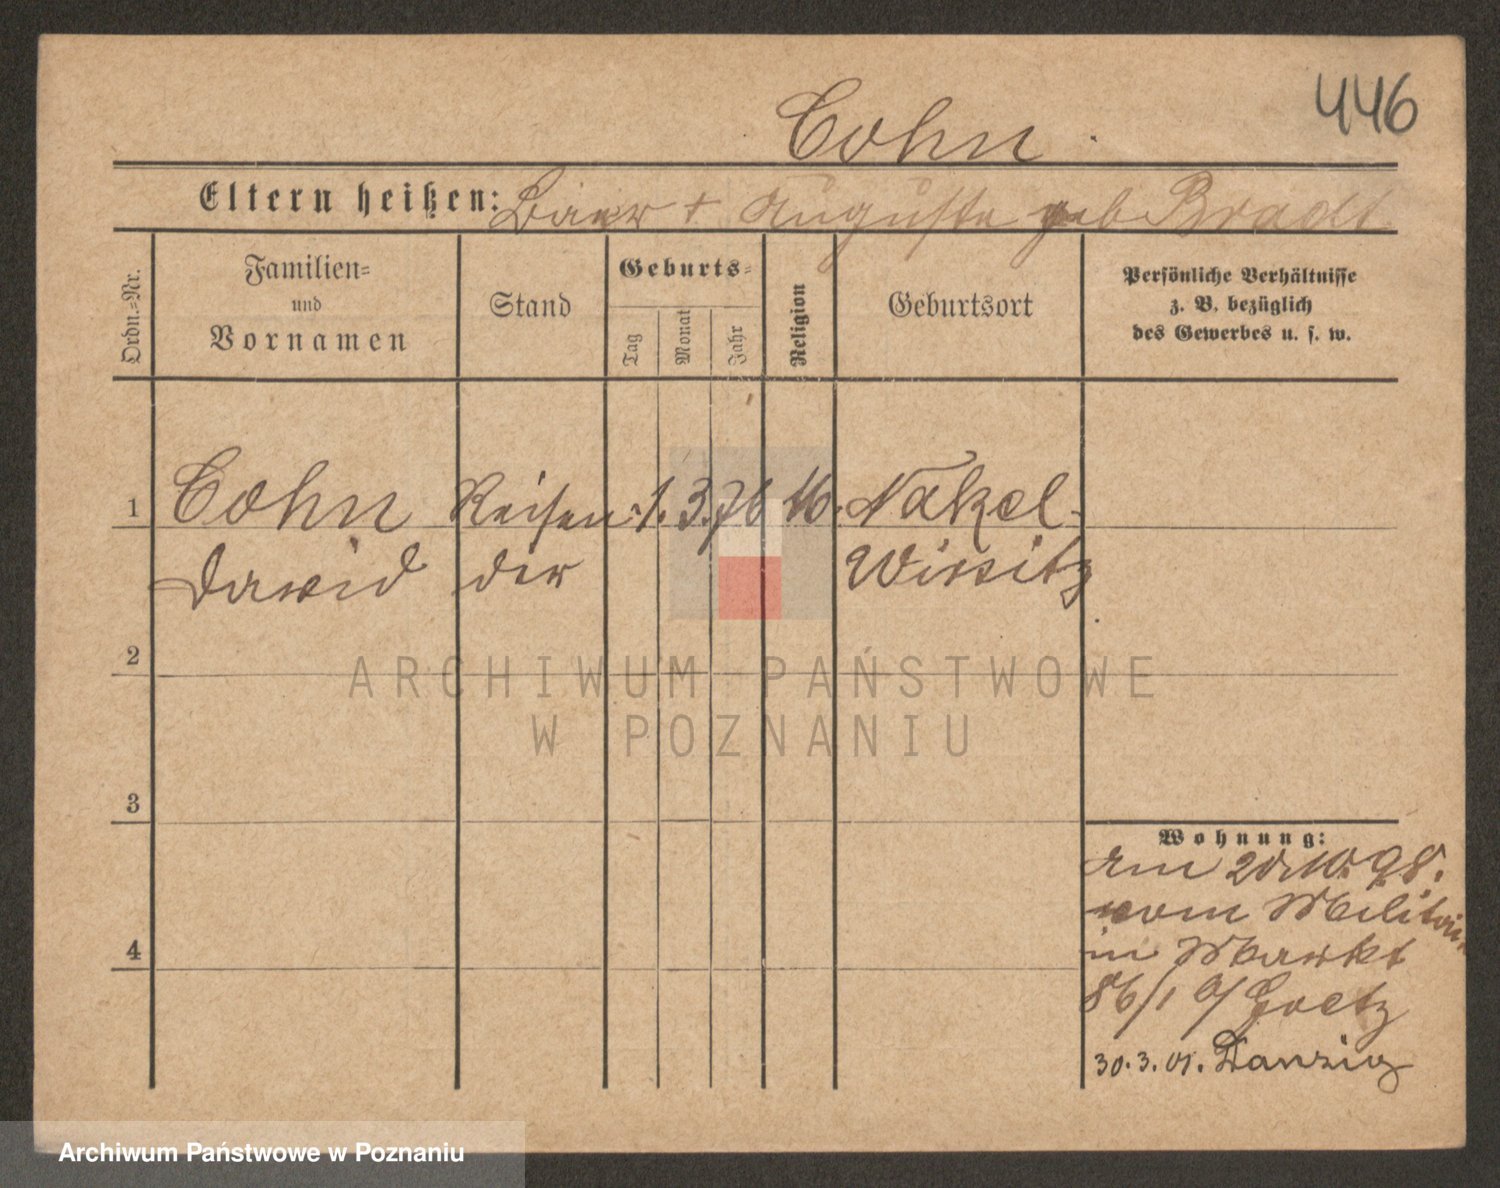 446
Cohn.
Eltern heißen: Baer + Auguste geb Bradt
Ordn.=Nr.
Familien=
und
Vornamen
Stand
Geburts=
Tag
Monat
Jahr
Religion
Geburtsort
Persönliche Verhältnisse
z. B. bezüglich
des Gewerbes u. s. w.
1 Cohn Reisen- 1. 3. 76 Nakel-
David der Wirsitz
2
ARCHIWUM PAŃSTWOWE
W POZNANIU
3
Wohnung:
am 20.10.98.
vom Militair
in Markt
86/1 b/ Goetz
4
30.3.01. Danzig
Archiwum Państwowe w Poznaniu